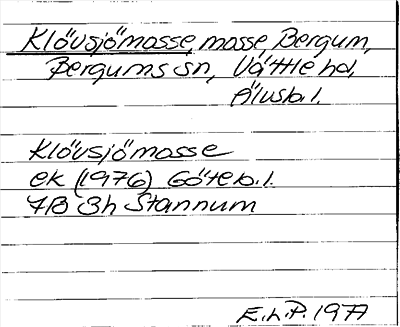 Klövsjömosse, mosse, Bergum,
Bergums sn, Vättle hd,
Älvsb. l.
Klövsjömosse
ek (1976) Göteb. l.
7B 3h Stannum
E.L.P. 1977